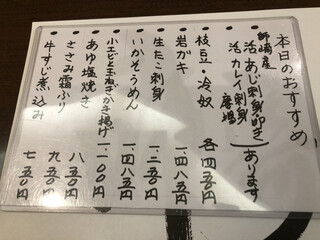 本日のおすすめ
師崎産
活あじ刺身(叩き)
活カレイ刺身
あります
枝豆・冷奴 各四五〇円
岩ガキ 一.四八五円
生たこ刺身 一.二五〇円
いかそうめん 一.四八五円
小エビと玉ねぎかき揚げ 一.一〇〇円
あゆ塩焼き 八五〇円
ささみ霜ふり 九五〇円
牛すじ煮込み 七五〇円